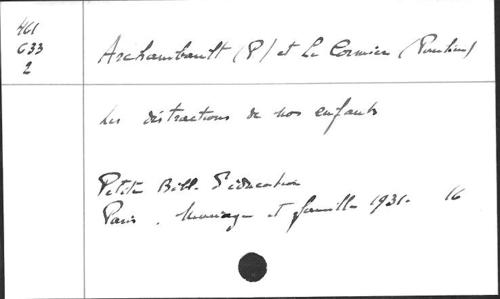 461
G33
2
Archambault (P) et Le Cormier (Pauline)
Les distractions de nos enfants
Petite Bibl. d'éducation
Paris. Mariage et famille 1931. 16